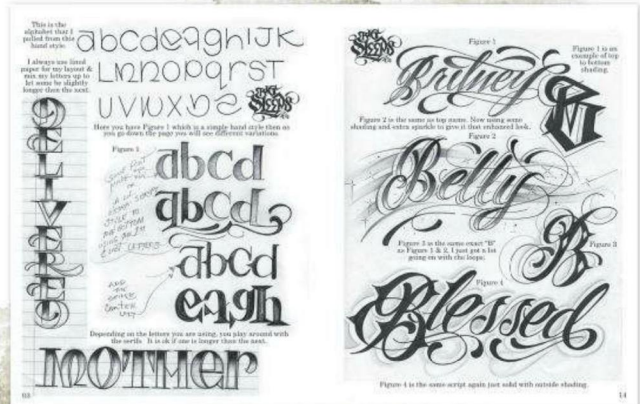 This is the
alphabet that I
pulled from this
hand style.
I always use lined
paper for my layout &
mix my letters up to
let some be slightly
longer then the next.
abcdeaghIJK
LMNOPQRST
UVWXYZ
BIG
SLEEPS
Here you have Figure 1 which is a simple hand style then as
you go down the page you will see different variations.
DELIVERED
Figure 1
abcd
abcd
abcd
eagh
Depending on the letters you are using, you play around with
the serifs. It is ok if one is longer than the next.
MOTHer
63
BIG
SLEEPS
Figure 1
Figure 1 is an
example of top
to bottom
shading.
Britney
B
Figure 2 is the same as top name. Now using some
shading and extra sparkle to give it that enhanced look.
Figure 2
Betty
Figure 3 is the same exact "B"
as Figure 1 & 2, I just got a lot
going on with the loops.
B
Figure 3
Figure 4
Blessed
Figure 4 is the same script again just solid with outside shading.
14